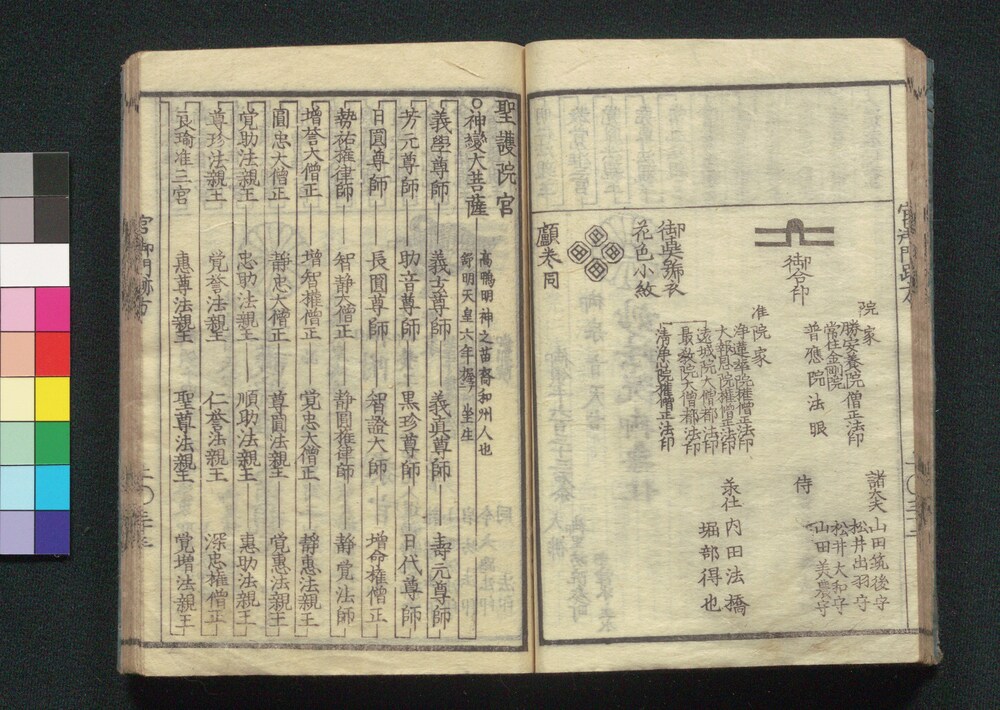 御合印
院家
勝安養院僧正法印
常住金剛院
普應院法眼
准院家
浄蓮華院権僧正法印
大報恩院権僧正法印
遠城院大僧都法印
最教院大僧都法印
清浄院権僧正法印
諸大夫
山田筑後守
松井出羽守
松井大和守
山田美濃守
侍
承仕
内田法橋
堀部得也
御輿舁衣
花色小紋
顱巻同
聖護院宮
○神變大菩薩
高鴨明神之苗裔和州人也
舒明天皇六年
坐生
義學尊師
義玄尊師
義真尊師
壽元尊師
芳元尊師
助音尊師
黒珍尊師
日代尊師
日圓尊師
長圓尊師
智證大師
増命権僧正
勢祐権律師
智静大僧正
静圓権律師
静覚法師
増誉大僧正
増智権僧正
覚忠大僧正
静惠法親王
圓忠大僧正
静忠大僧正
尊圓法親王
覚惠法親王
覚助法親王
忠助法親王
順助法親王
惠助法親王
尊珍法親王
覚誉法親王
仁誉法親王
深忠権僧正
良瑜准三宮
惠尊法親王
聖尊法親王
覚増法親王